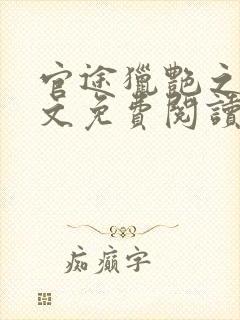 官途獵艷之
文免費閱讀
痴癲字